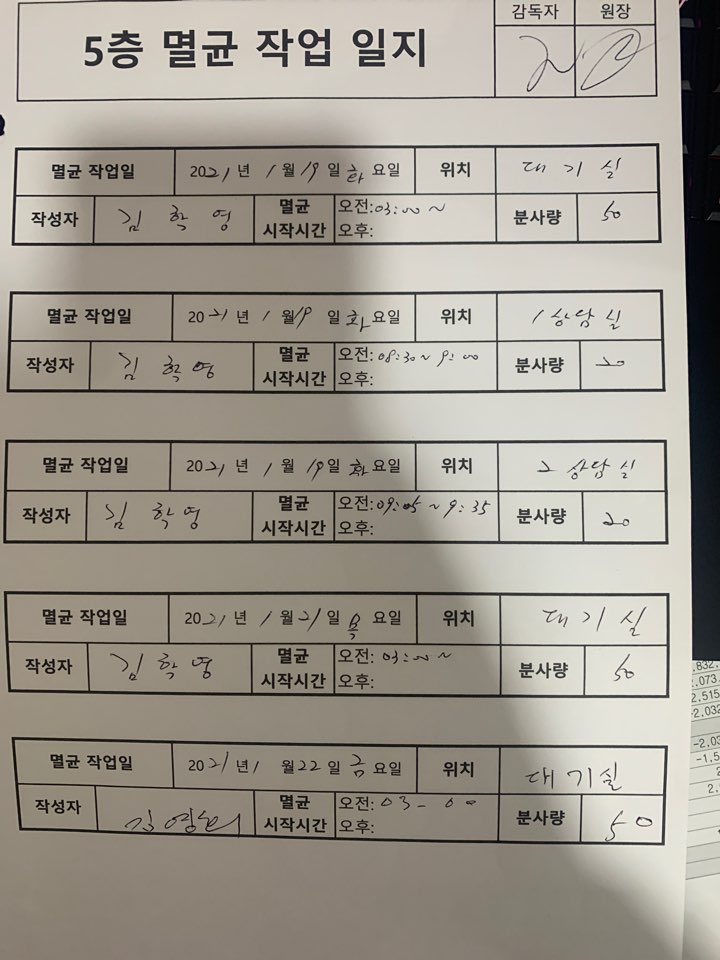 감독자 원장
5층 멸균 작업 일지
멸균 작업일 2021년 1월 19일 화요일 위치 대기실
작성자 김학영 멸균 시작시간 오전:03:00~ 분사량 50
오후:
멸균 작업일 2021년 1월 19일 화요일 위치 1상담실
작성자 김학영 멸균 시작시간 오전:08:30~9:00 분사량 20
오후:
멸균 작업일 2021년 1월 19일 화요일 위치 2상담실
작성자 김학영 멸균 시작시간 오전:09:05~9:35 분사량 20
오후:
멸균 작업일 2021년 1월 21일 목요일 위치 대기실
작성자 김학영 멸균 시작시간 오전:03:00~ 분사량 50
오후:
멸균 작업일 2021년 1월 22일 금요일 위치 대기실
작성자 멸균 시작시간 오전:03-00 분사량 50
오후: